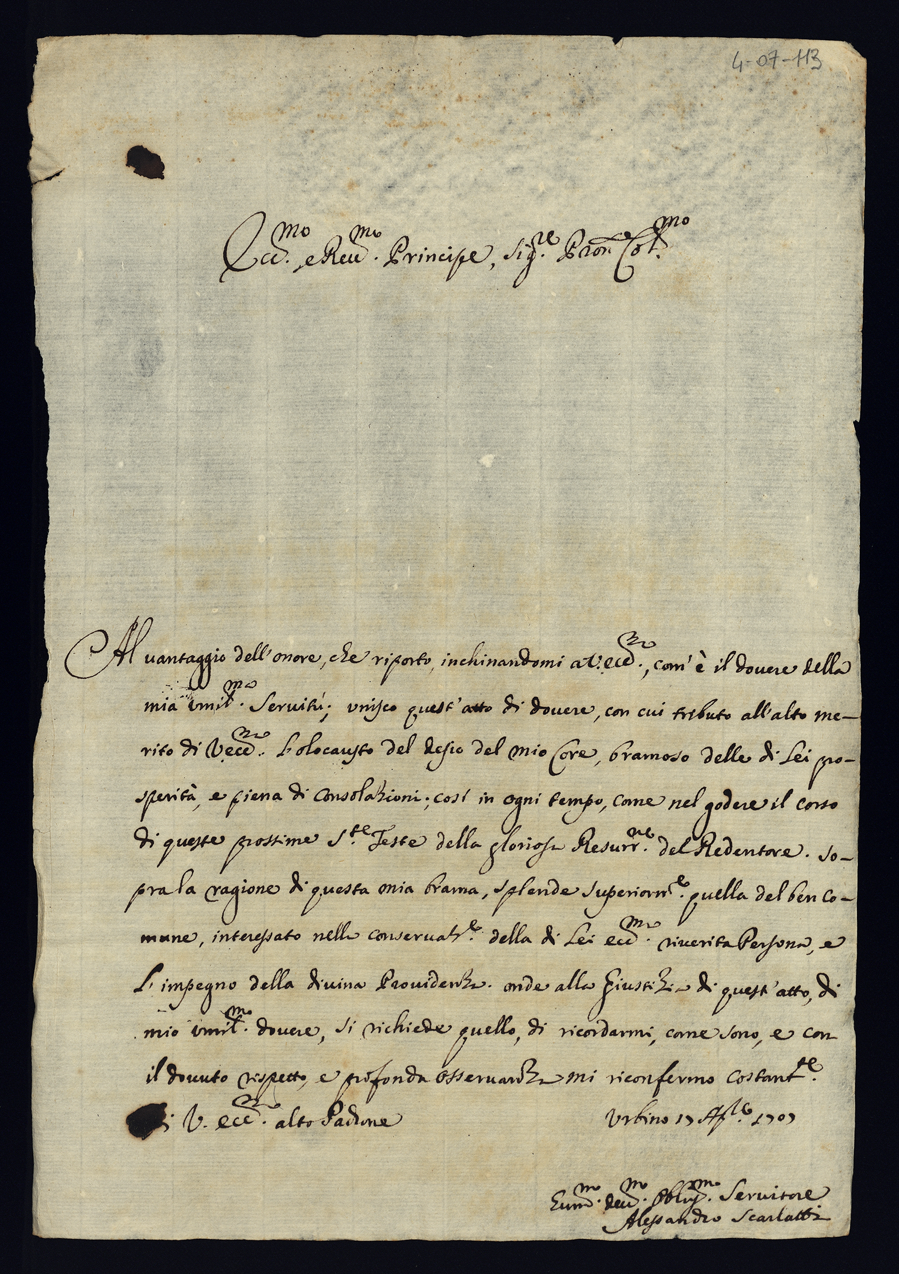 4-07-113
Ecc.mo e Reu.mo Principe, Sig.re Pron Col.mo
Al vantaggio dell'onore, che riporto, inchinandomi a V. ecc.za, com'è il douere della
mia vmil.ma Seruitù; vnisco quest'atto di douere, con cui tributo all'alto me-
rito di V. ecc.za L'olocausto del desio del mio Core, bramoso delle di Lei pro-
sperità, e piena di Consolazioni; così in ogni tempo, come nel godere il corso
di queste prossime S.te Feste della gloriosa Resurr.ne del Redentore. So-
pra la ragione di questa mia brama, splende superiorm.te quella del ben co-
mune, interessato nella conseruat.ne della di Lei ecc.ma riuerita Persona, e
L'impegno della diuina Prouidenza. onde alla Giustizia di quest'atto, di
mio vmil.mo douere, si richiede quello, di ricordarmi, come sono, e con
il douuto rispetto, e profonda osseruanza mi riconfermo costant.te
i V. ecc.za alto Padrone Vrbino 17 Ap.le 1707
Vum.mo deu.mo Obbli.mo Seruitore
Alessandro Scarlatti